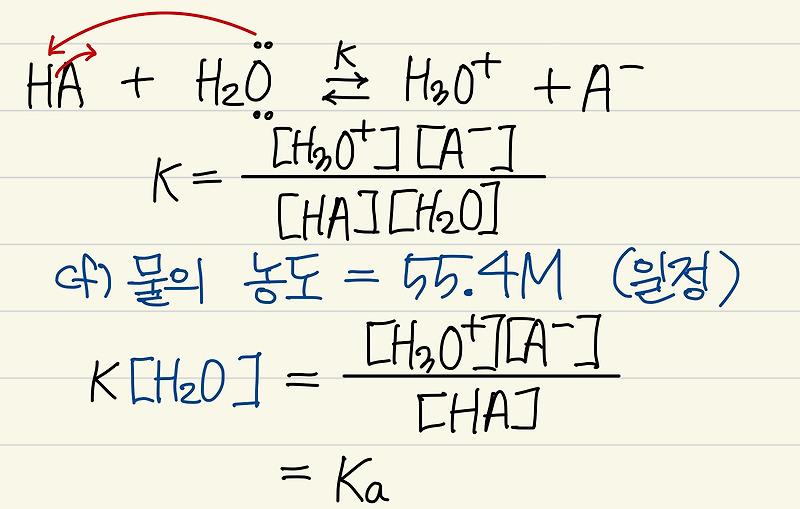 HA + H₂O ⇌ H₃O⁺ + A⁻
K
K = [H₃O⁺][A⁻] / [HA][H₂O]
cf) 물의 농도 = 55.4M (일정)
K[H₂O] = [H₃O⁺][A⁻] / [HA]
= Ka